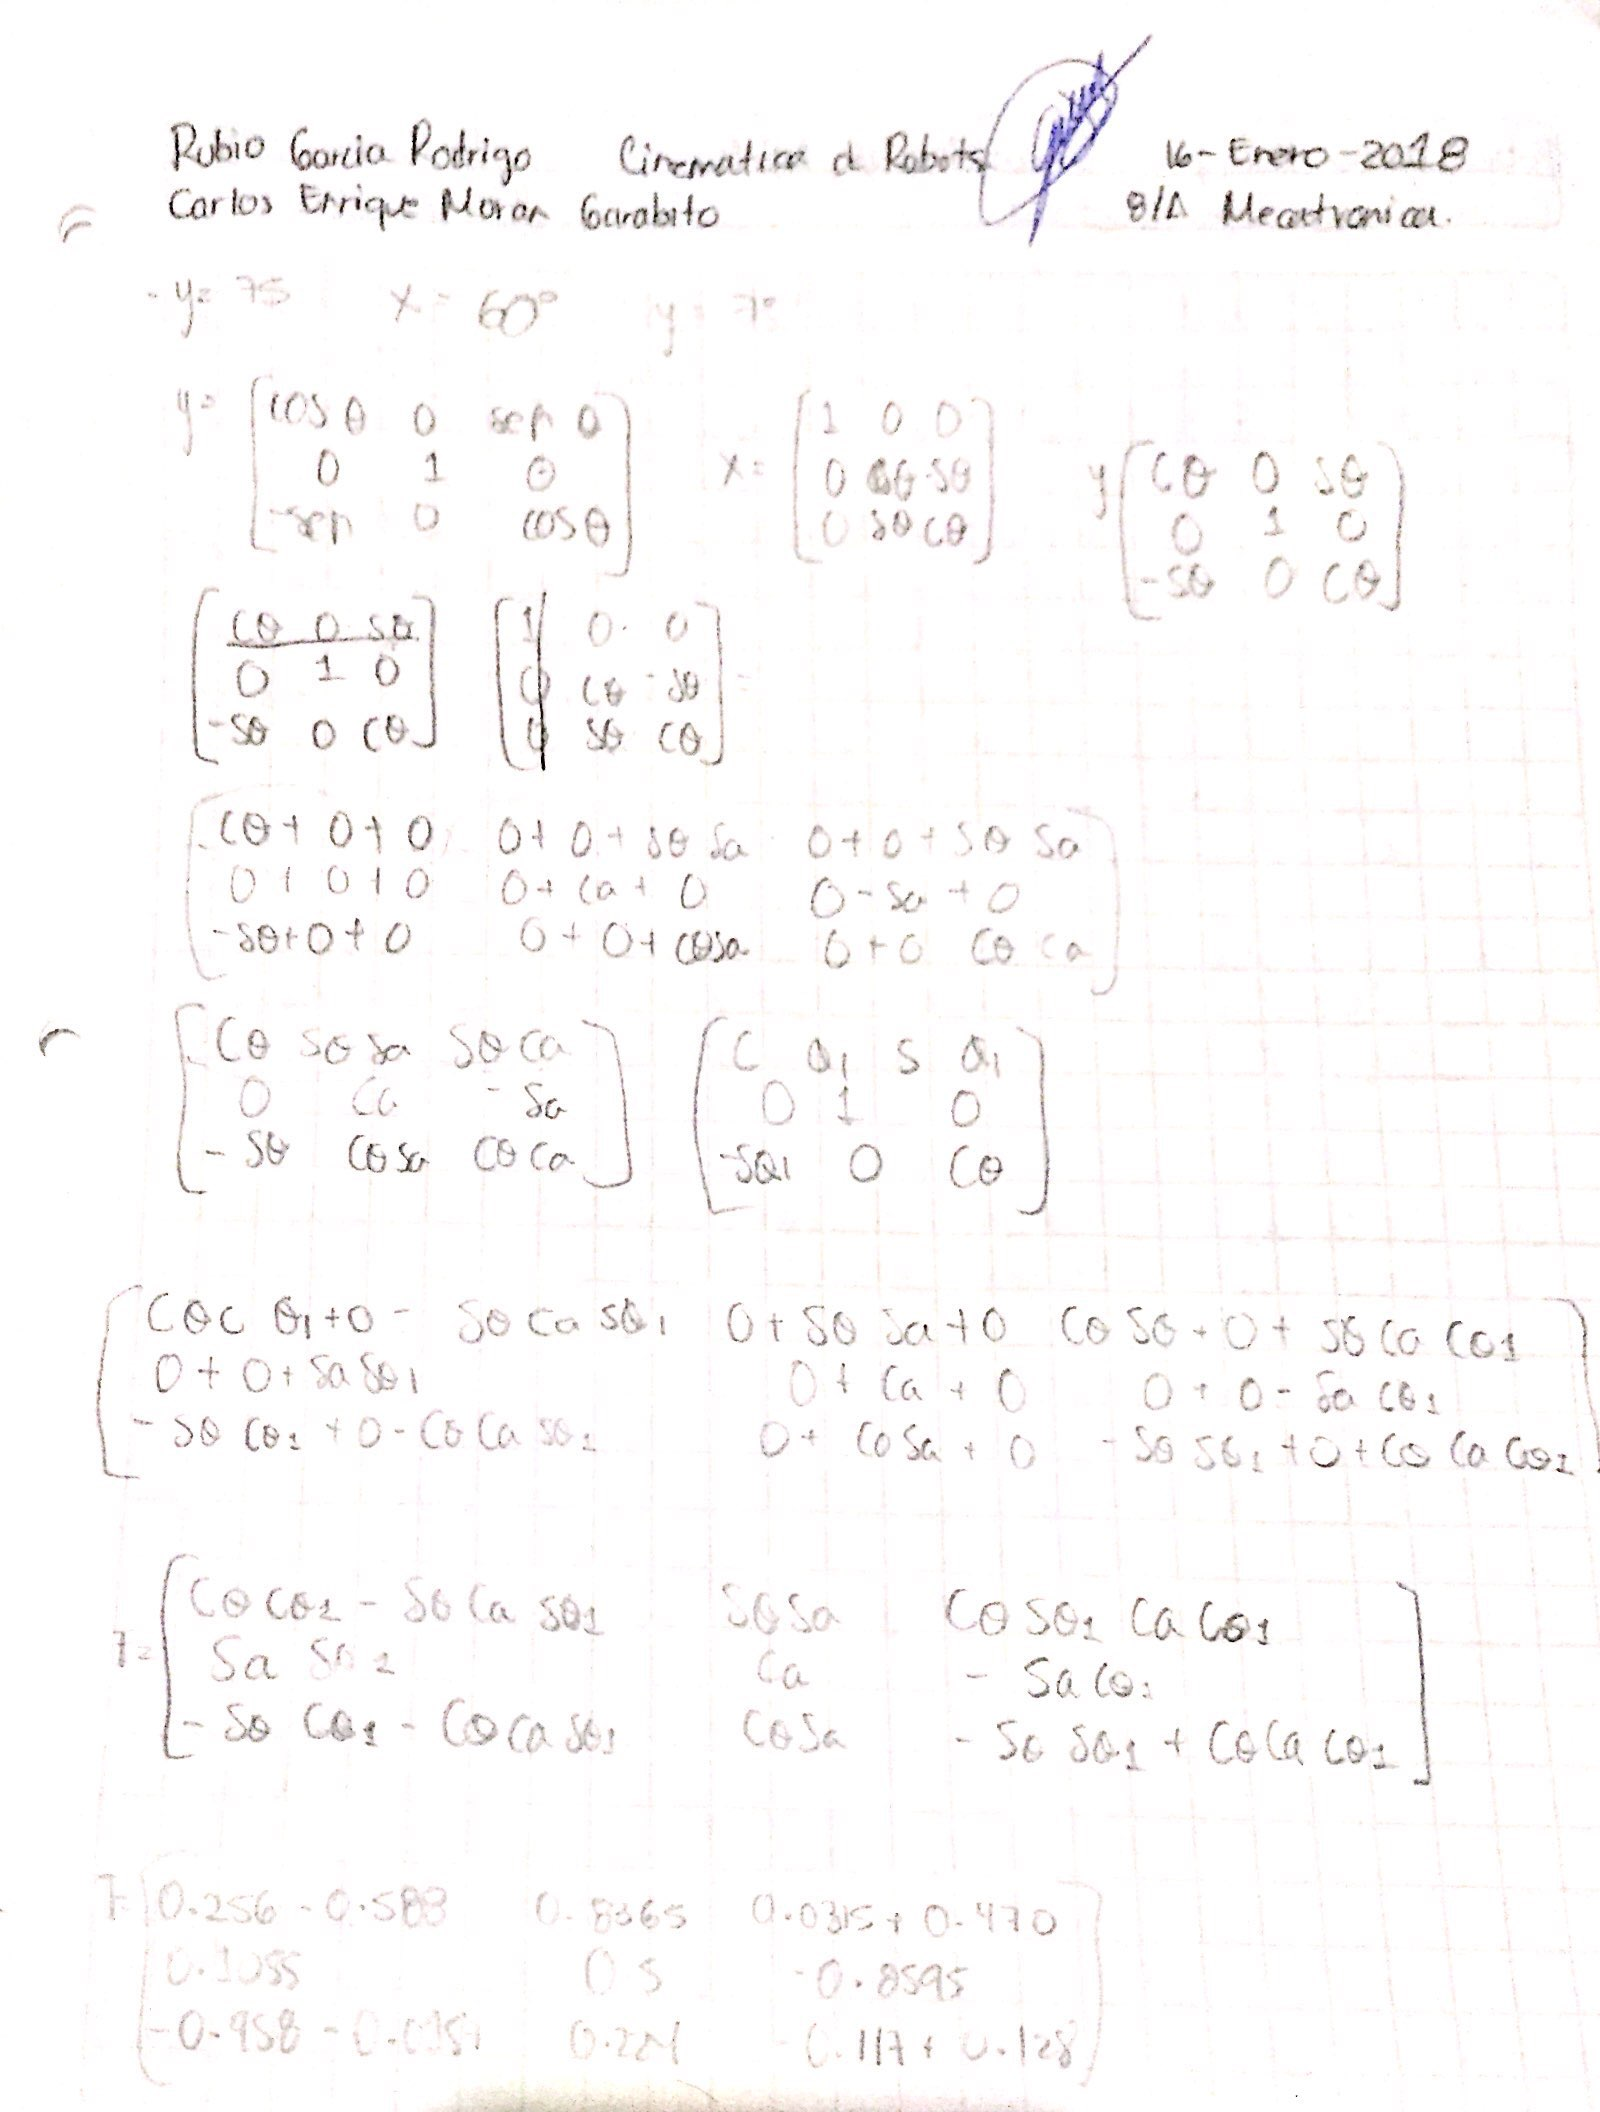 Rubio Garcia Rodrigo Cinematica d Robots 16-Enero-2018
Carlos Enrique Moran Garabito 8/A Mecatronica.
- y= 75 x= 60° y = 7°
y= [cos θ 0 sen θ] x= [1 0 0] y [Cθ 0 Sθ]
[0 1 0] [0 Cθ -Sθ] [0 1 0]
[-sen 0 cos θ] [0 Sθ Cθ] [-Sθ 0 Cθ]
[Cθ 0 Sθ] [1 0 0]
[0 1 0] [0 Cθ -Sθ] =
[-Sθ 0 Cθ] [0 Sθ Cθ]
[Cθ + 0 + 0 0 + 0 + Sθ Sa 0 + 0 + Sθ Sa]
[0 + 0 + 0 0 + Ca + 0 0 - Sa + 0]
[-Sθ + 0 + 0 0 + 0 + CθSa 0 + 0 Cθ Ca]
[Cθ Sθ Sa Sθ Ca] [C θ1 S θ1]
[0 Ca - Sa] [0 1 0]
[- Sθ Cθ Sa Cθ Ca] [-Sθ1 0 Cθ]
[CθC θ1 + 0 - Sθ Ca Sθ1 0 + Sθ Sa + 0 Cθ Sθ + 0 + Sθ Ca Cθ1]
[0 + 0 + Sa Sθ1 0 + Ca + 0 0 + 0 - Sa Cθ1]
[- Sθ Cθ1 + 0 - Cθ Ca Sθ1 0 + Cθ Sa + 0 - Sθ Sθ1 + 0 + Cθ Ca Cθ1]
[Cθ Cθ1 - Sθ Ca Sθ1 Sθ Sa Cθ Sθ1 Ca Cθ1]
T= [Sa Sθ1 Ca - Sa Cθ1]
[- Sθ Cθ1 - Cθ Ca Sθ1 Cθ Sa - Sθ Sθ1 + Cθ Ca Cθ1]
T= [0.256 - 0.588 0.8365 0.0315 + 0.470]
[0.1055 0.5 -0.8595]
[-0.958 - 0.015 0.224 -0.117 + 0.128]